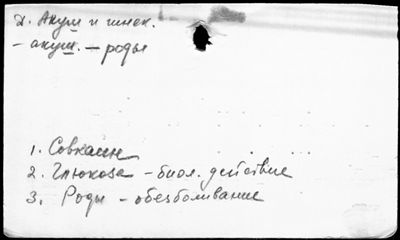 2. Акуш и гинек.
- акуш. - роды
1. Совкаин
2. Глюкоза - биол. действие
3. Роды - обезболивание